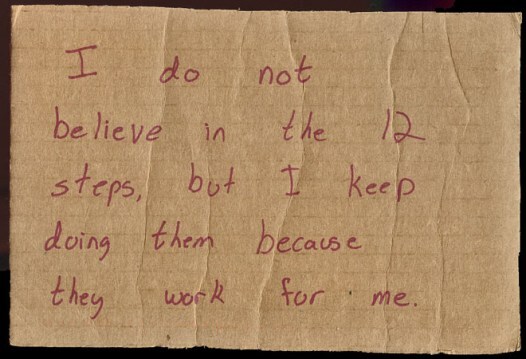 I do not
believe in the 12
steps, but I keep
doing them because
they work for me.